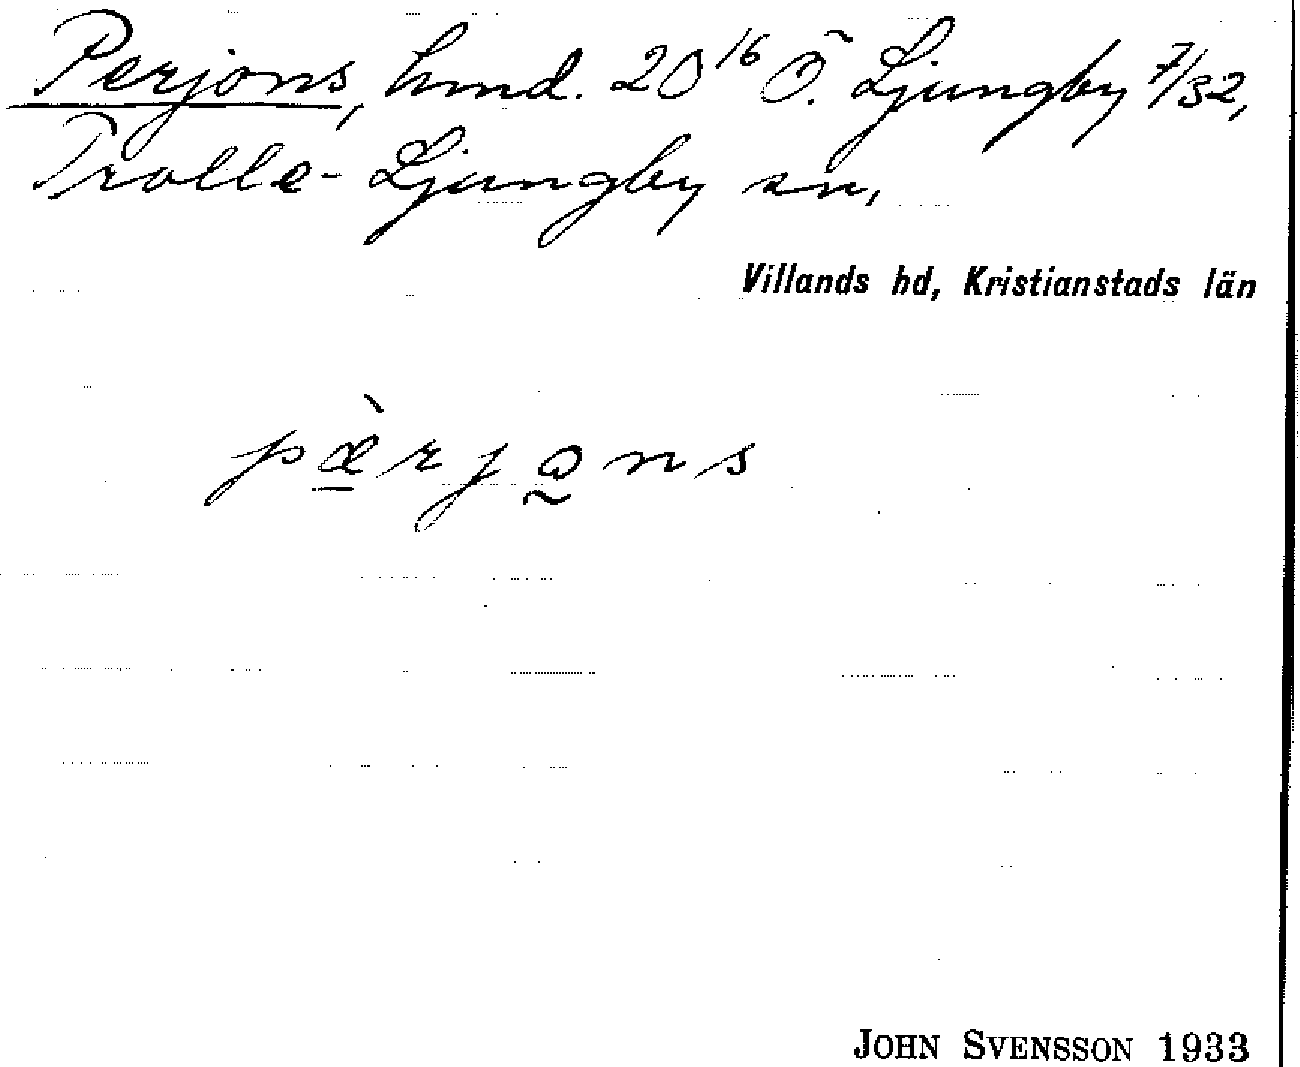 Perjons, hmd. 20¹⁶ Ö. Ljungby 7/32,
Trolle-Ljungby sn,
Villands hd, Kristianstads län
pæ̠̀rjo̰ns
JOHN SVENSSON 1933